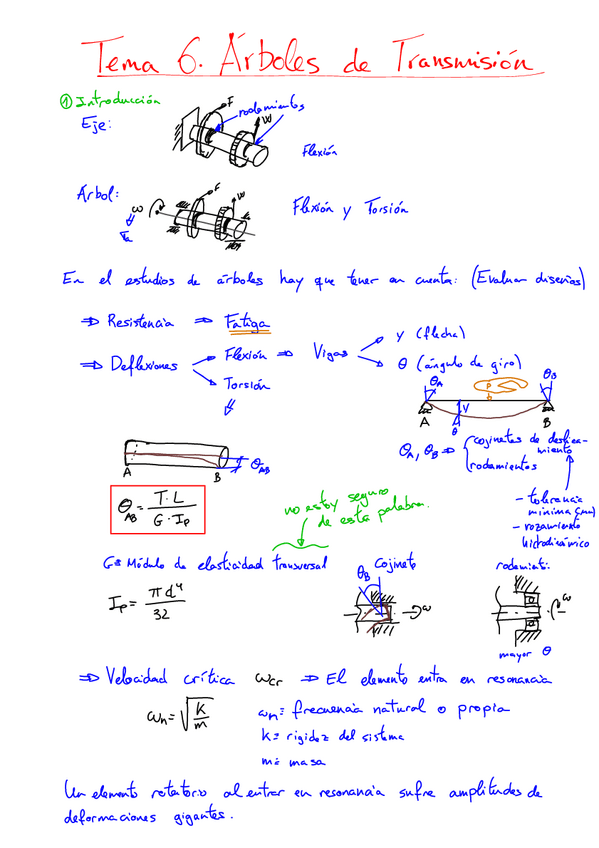 Tema 6. Árboles de Transmisión
① Introducción
Eje:
F
rodamientos
W
Flexión
Árbol:
ω
F
W
Flexión y Torsión
En el estudios de árboles hay que tener en cuenta: (Evaluar diseños)
⇒ Resistencia ⇒ Fatiga
⇒ Deflexiones
Flexión ⇒ Vigas
y (flecha)
θ (ángulo de giro)
Torsión
θA
θB
A
V
θ
B
θA, θB ⇒
cojinetes de desliza-
miento
rodamientos
A
B
θAB
θAB = T·L / G·Ip
no estoy seguro
de esta palabra.
- tolerancia
mínima (mm)
- rozamiento
hidrodinámico
G ≡ Módulo de elasticidad transversal
Ip = πd⁴ / 32
θB
cojinete
ω
rodamient.
ω
mayor θ
⇒ Velocidad crítica ωcr ⇒ El elemento entra en resonancia
ωn = √(k/m)
ωn = frecuencia natural o propia
k = rigidez del sistema
m = masa
Un elemento rotatorio al entrar en resonancia sufre amplitudes de
deformaciones gigantes.